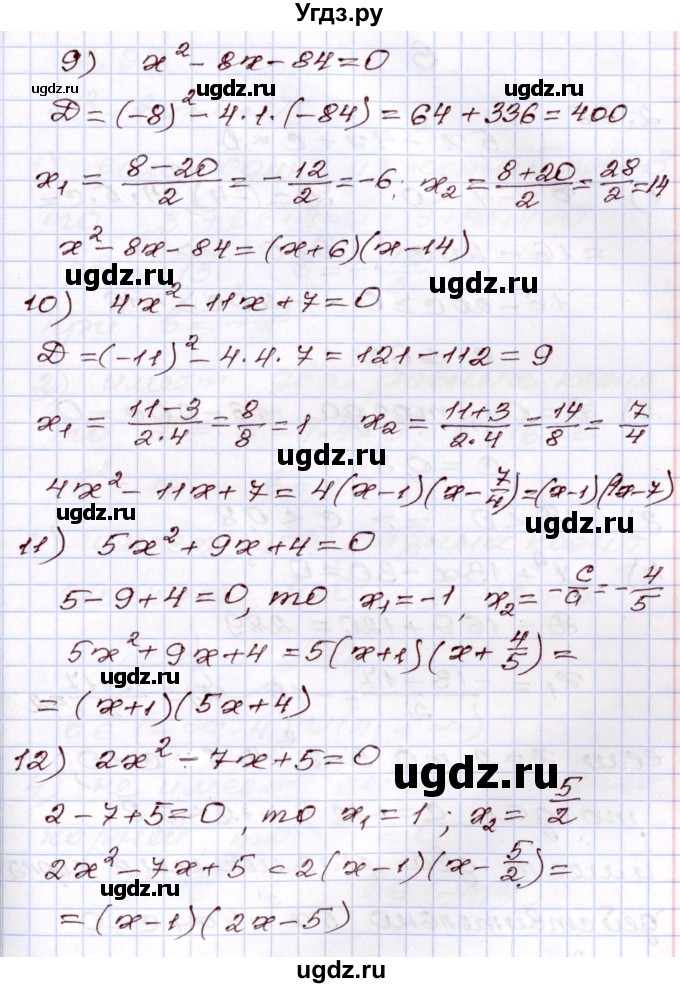 Угдз.ру
9) x² - 8x - 84 = 0
ugdz.ru ugdz.ru
Д = (-8)² - 4·1·(-84) = 64 + 336 = 400
x₁ = (8-20)/2 = -12/2 = -6; x₂ = (8+20)/2 = 28/2 = 14
x² - 8x - 84 = (x+6)(x-14)
ugdz.ru ugdz.ru
10) 4x² - 11x + 7 = 0
Д = (-11)² - 4·4·7 = 121 - 112 = 9
x₁ = (11-3)/(2·4) = 8/8 = 1 x₂ = (11+3)/(2·4) = 14/8 = 7/4
ugdz.ru
4x² - 11x + 7 = 4(x-1)(x-7/4) = (x-1)(4x-7)
ugdz.ru ugdz.ru
11) 5x² + 9x + 4 = 0
5 - 9 + 4 = 0, то x₁ = -1, x₂ = -c/a = -4/5
5x² + 9x + 4 = 5(x+1)(x+4/5) =
ugdz.ru
= (x+1)(5x+4)
12) 2x² - 7x + 5 = 0
ugdz.ru
2 - 7 + 5 = 0, то x₁ = 1; x₂ = 5/2
2x² - 7x + 5 = 2(x-1)(x-5/2) =
ugdz.ru
= (x-1)(2x-5)
ugdz.ru